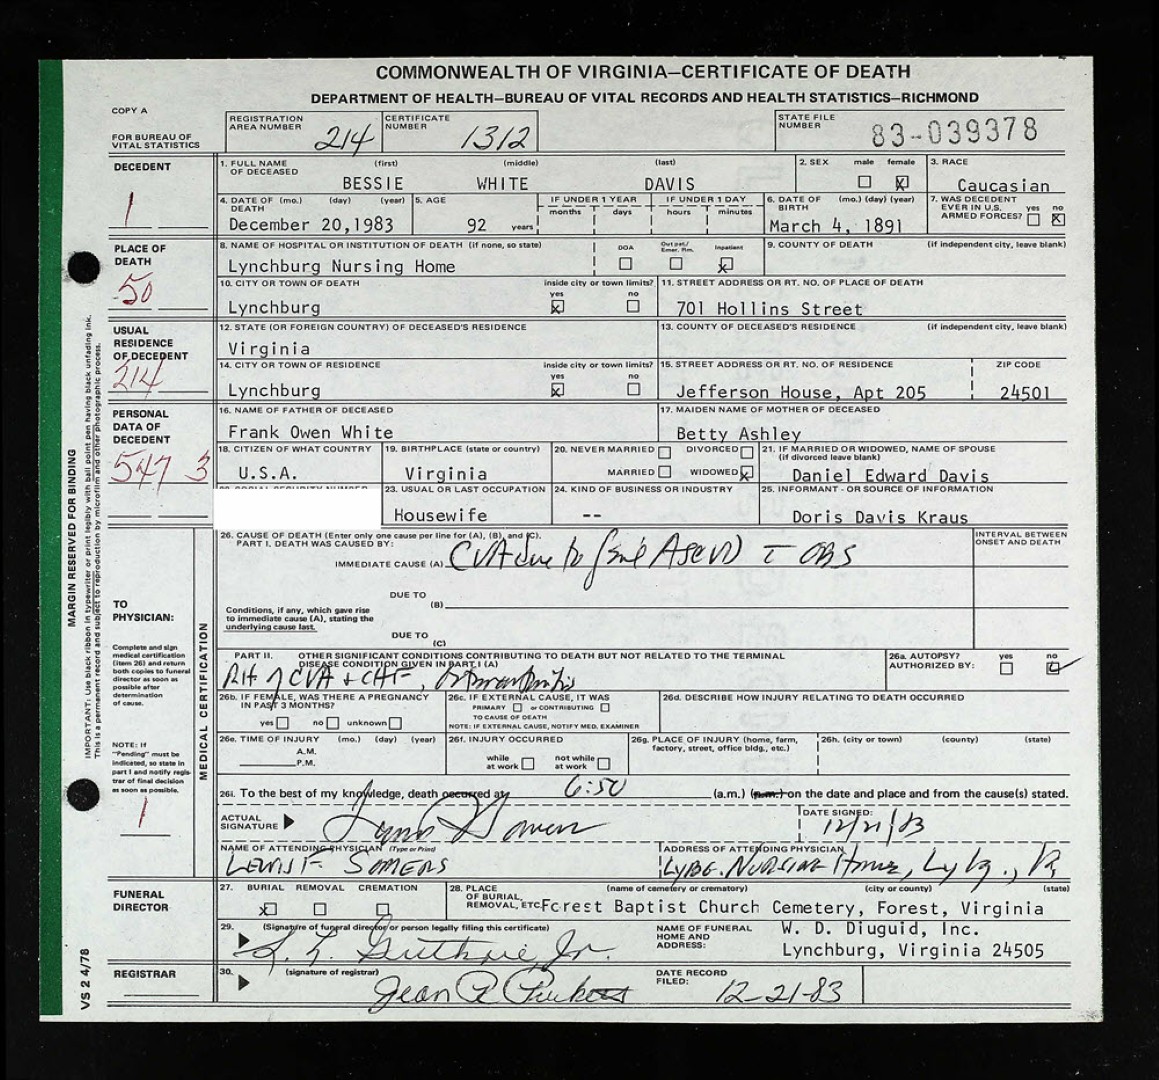 COMMONWEALTH OF VIRGINIA—CERTIFICATE OF DEATH
DEPARTMENT OF HEALTH—BUREAU OF VITAL RECORDS AND HEALTH STATISTICS—RICHMOND
COPY A
FOR BUREAU OF VITAL STATISTICS
REGISTRATION AREA NUMBER 214
CERTIFICATE NUMBER 1312
STATE FILE NUMBER 83-039378
DECEDENT
1
1. FULL NAME OF DECEASED (first) (middle) (last)
BESSIE WHITE DAVIS
2. SEX male female X
3. RACE
Caucasian
4. DATE OF DEATH (mo.) (day) (year)
December 20,1983
5. AGE
92 years
IF UNDER 1 YEAR months days
IF UNDER 1 DAY hours minutes
6. DATE OF BIRTH (mo.) (day) (year)
March 4, 1891
7. WAS DECEDENT EVER IN U.S. ARMED FORCES? yes no X
PLACE OF DEATH
50
8. NAME OF HOSPITAL OR INSTITUTION OF DEATH (if none, so state)
Lynchburg Nursing Home
DOA Out pat./ Emer. Rm. Inpatient X
9. COUNTY OF DEATH (if independent city, leave blank)
10. CITY OR TOWN OF DEATH inside city or town limits? yes X no
Lynchburg
11. STREET ADDRESS OR RT. NO. OF PLACE OF DEATH
701 Hollins Street
USUAL RESIDENCE OF DECEDENT
214
12. STATE (OR FOREIGN COUNTRY) OF DECEASED'S RESIDENCE
Virginia
13. COUNTY OF DECEASED'S RESIDENCE (if independent city, leave blank)
14. CITY OR TOWN OF RESIDENCE inside city or town limits? yes X no
Lynchburg
15. STREET ADDRESS OR RT. NO. OF RESIDENCE ZIP CODE
Jefferson House, Apt 205 24501
PERSONAL DATA OF DECEDENT
547 3
16. NAME OF FATHER OF DECEASED
Frank Owen White
17. MAIDEN NAME OF MOTHER OF DECEASED
Betty Ashley
18. CITIZEN OF WHAT COUNTRY
U.S.A.
19. BIRTHPLACE (state or country)
Virginia
20. NEVER MARRIED DIVORCED
MARRIED WIDOWED X
21. IF MARRIED OR WIDOWED, NAME OF SPOUSE
(if divorced leave blank)
Daniel Edward Davis
23. USUAL OR LAST OCCUPATION
Housewife
24. KIND OF BUSINESS OR INDUSTRY
--
25. INFORMANT - OR SOURCE OF INFORMATION
Doris Davis Kraus
MARGIN RESERVED FOR BINDING
IMPORTANT: Use black ribbon in typewriter or print legibly with ball point pen having black unfading ink.
This is a permanent record and subject to reproduction by microfilm and other photographic process.
TO PHYSICIAN:
Complete and sign medical certification (item 26) and return both copies to funeral director as soon as possible after determination of cause.
NOTE: If "Pending" must be indicated, so state in part I and notify registrar of final decision as soon as possible.
1
MEDICAL CERTIFICATION
26. CAUSE OF DEATH (Enter only one cause per line for (A), (B), and (C).
PART I. DEATH WAS CAUSED BY:
IMMEDIATE CAUSE (A) CVA due to ASCVD OBS
INTERVAL BETWEEN ONSET AND DEATH
DUE TO (B)
Conditions, if any, which gave rise to immediate cause (A), stating the underlying cause last.
DUE TO (C)
PART II. OTHER SIGNIFICANT CONDITIONS CONTRIBUTING TO DEATH BUT NOT RELATED TO THE TERMINAL DISEASE CONDITION GIVEN IN PART I (A)
CVA + CHF,
26a. AUTOPSY? AUTHORIZED BY: yes no
26b. IF FEMALE, WAS THERE A PREGNANCY IN PAST 3 MONTHS?
yes no unknown
26c. IF EXTERNAL CAUSE, IT WAS
PRIMARY or CONTRIBUTING
TO CAUSE OF DEATH
NOTE: IF EXTERNAL CAUSE, NOTIFY MED. EXAMINER
26d. DESCRIBE HOW INJURY RELATING TO DEATH OCCURRED
26e. TIME OF INJURY (mo.) (day) (year)
A.M.
P.M.
26f. INJURY OCCURRED
while at work not while at work
26g. PLACE OF INJURY (home, farm, factory, street, office bldg., etc.)
26h. (city or town) (county) (state)
26i. To the best of my knowledge, death occurred at 6:50 (a.m.) (p.m.) on the date and place and from the cause(s) stated.
ACTUAL SIGNATURE
DATE SIGNED:
12/21/83
NAME OF ATTENDING PHYSICIAN (Type or Print)
LEWIS F. SOMERS
ADDRESS OF ATTENDING PHYSICIAN
LYBG. NURSING Home, Lybg., Va
FUNERAL DIRECTOR
27. BURIAL X REMOVAL CREMATION
28. PLACE OF BURIAL, REMOVAL, ETC. (name of cemetery or crematory) (city or county) (state)
Forest Baptist Church Cemetery, Forest, Virginia
29. (Signature of funeral director or person legally filing this certificate)
S. L. Guthrie, Jr.
NAME OF FUNERAL HOME AND ADDRESS:
W. D. Diuguid, Inc.
Lynchburg, Virginia 24505
REGISTRAR
30. (signature of registrar)
Jean R. Puckett
DATE RECORD FILED:
12-21-83
VS 2 4/78